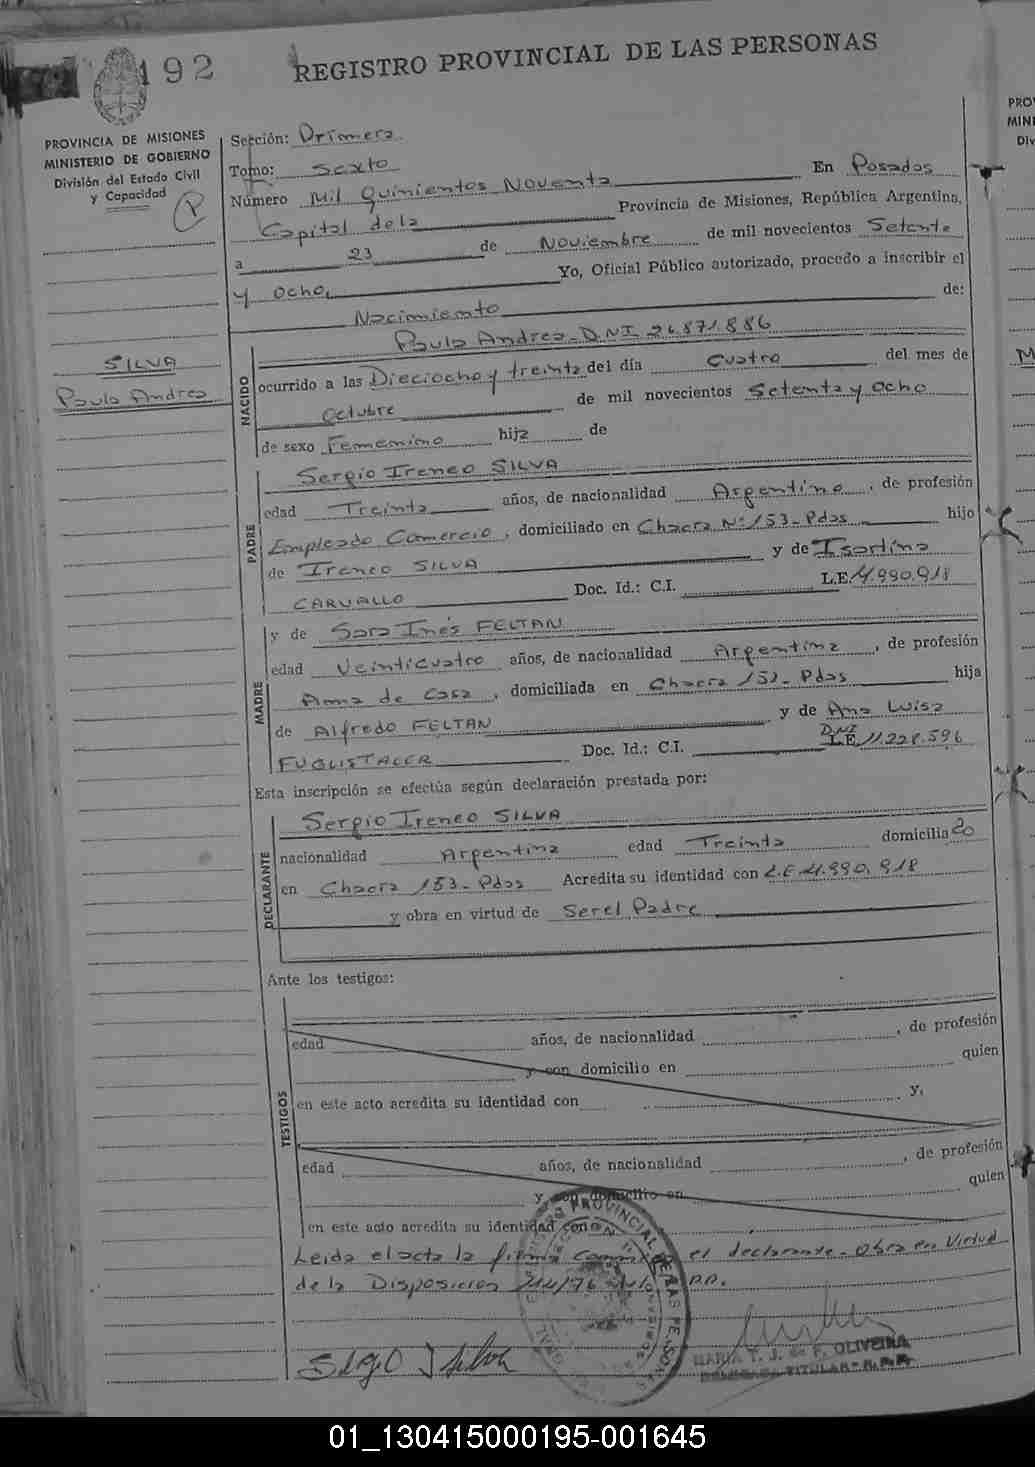 192
REGISTRO PROVINCIAL DE LAS PERSONAS
PROVINCIA DE MISIONES
MINISTERIO DE GOBIERNO
División del Estado Civil
y Capacidad
P
SILVA
Paula Andrea
Sección: Primera
Tomo: Sexto
Número Mil Quinientos Noventa En Posadas
Capital de la Provincia de Misiones, República Argentina,
a 23 de Noviembre de mil novecientos Setenta
y Ocho, Yo, Oficial Público autorizado, procedo a inscribir el
Nacimiento de:
NACIDO
Paula Andrea D.N.I. 26.871.886
ocurrido a las Dieciocho y treinta del día Cuatro del mes de
Octubre de mil novecientos Setenta y Ocho
de sexo Femenino hija de
PADRE
Sergio Ireneo SILVA
edad Treinta años, de nacionalidad Argentino, de profesión
Empleado Comercio, domiciliado en Chacra Nº 153-Pdas hijo
de Ireneo SILVA y de Isartina
CARVALLO Doc. Id.: C.I. L.E. 4.990.918
MADRE
y de Sara Inés FELTAN
edad Veinticuatro años, de nacionalidad Argentina, de profesión
Ama de Casa, domiciliada en Chacra 151- Pdas hija
de Alfredo FELTAN y de Ana Luisa
FUGLISTALER Doc. Id.: C.I. DNI L.E. 11.228.596
Esta inscripción se efectúa según declaración prestada por:
DECLARANTE
Sergio Ireneo SILVA
nacionalidad Argentina edad Treinta domiciliado
en Chacra 153-Pdas Acredita su identidad con L.E 4.990.918
y obra en virtud de Ser el Padre
Ante los testigos:
TESTIGOS
edad años, de nacionalidad , de profesión
y con domicilio en quien
en este acto acredita su identidad con y,
edad años, de nacionalidad , de profesión
y con domicilio en quien
en este acto acredita su identidad con
Leida el acta la firma el declarante - Obra en Virtud
de la Disposicion
REGISTRO PROVINCIAL DE LAS PERSONAS
Sergo I Silva
MARIA T. J. de F. OLIVEIRA
DELEGADA TITULAR - R.P.P.
PRO
MINI
Div
M
01_130415000195-001645